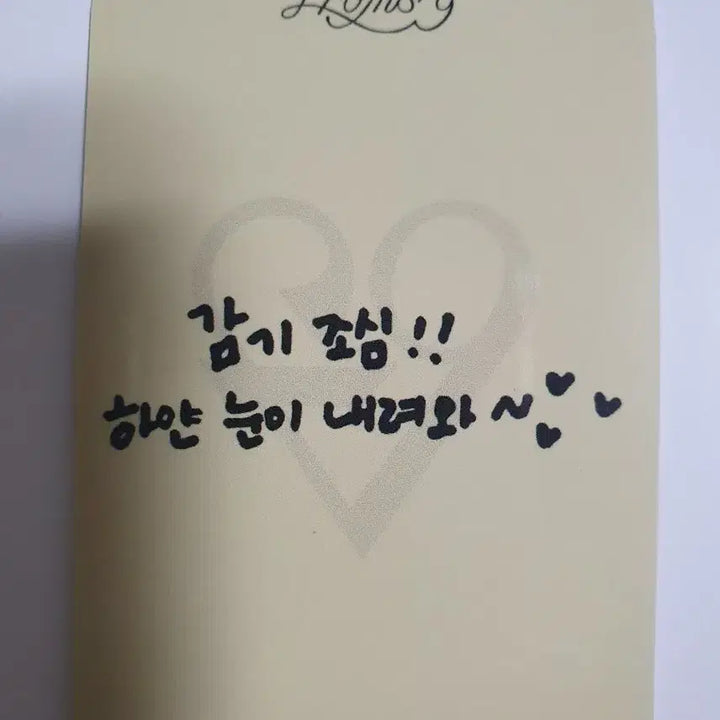 감기 조심!!
하얀 눈이 내려와 ~